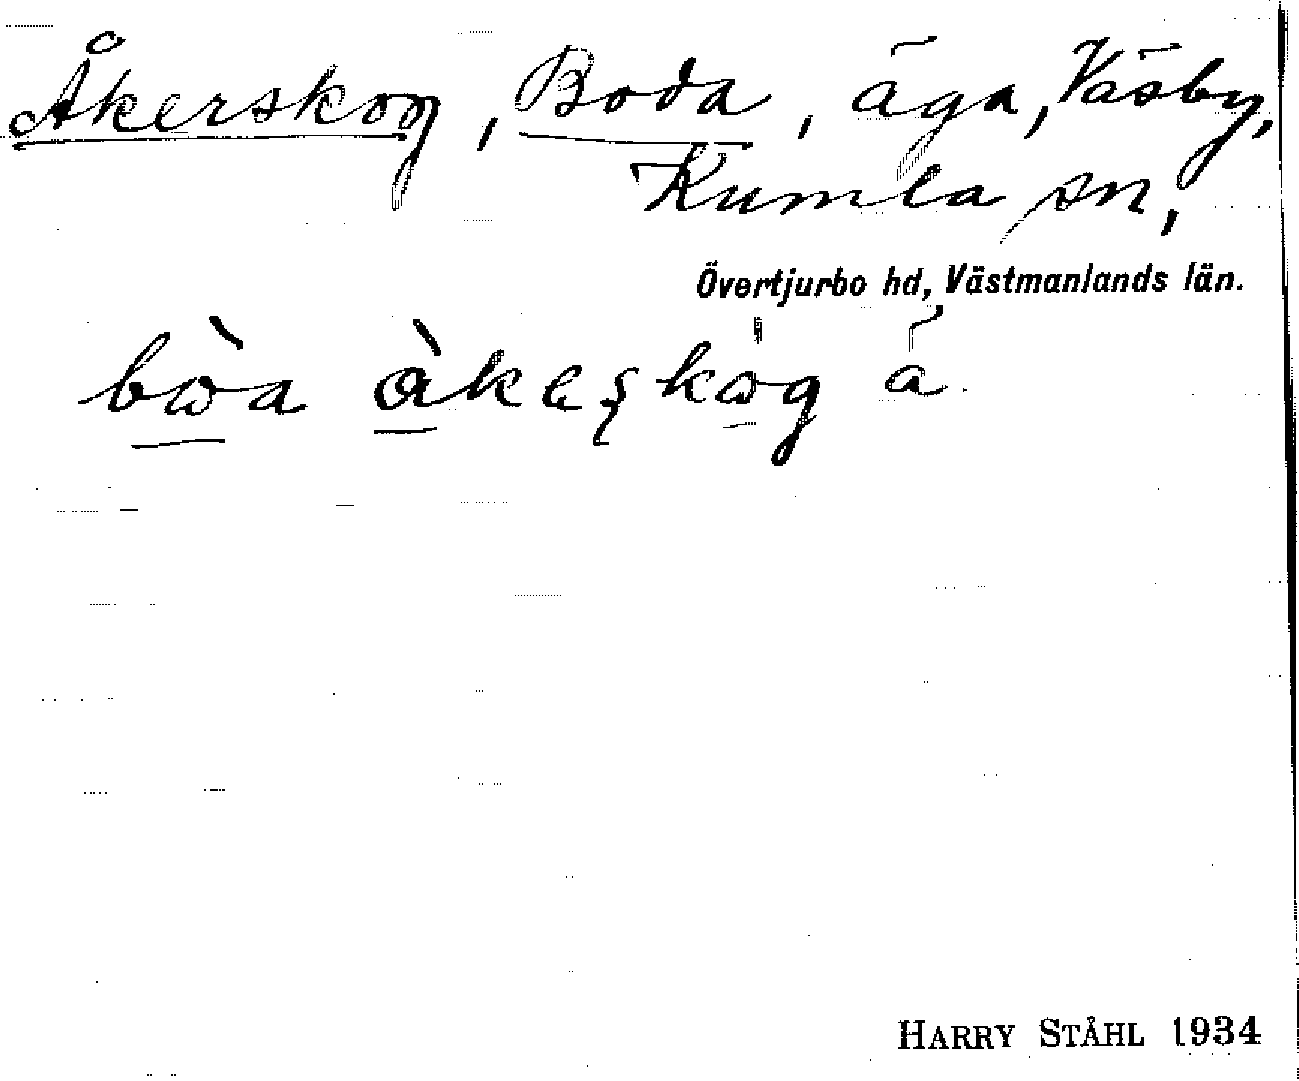 Åkerskog, Boda, äga, Väsby,
Kumla sn,
Övertjurbo hd, Västmanlands län.
bω
̀a àkeʂkωg a
HARRY STÅHL 1934